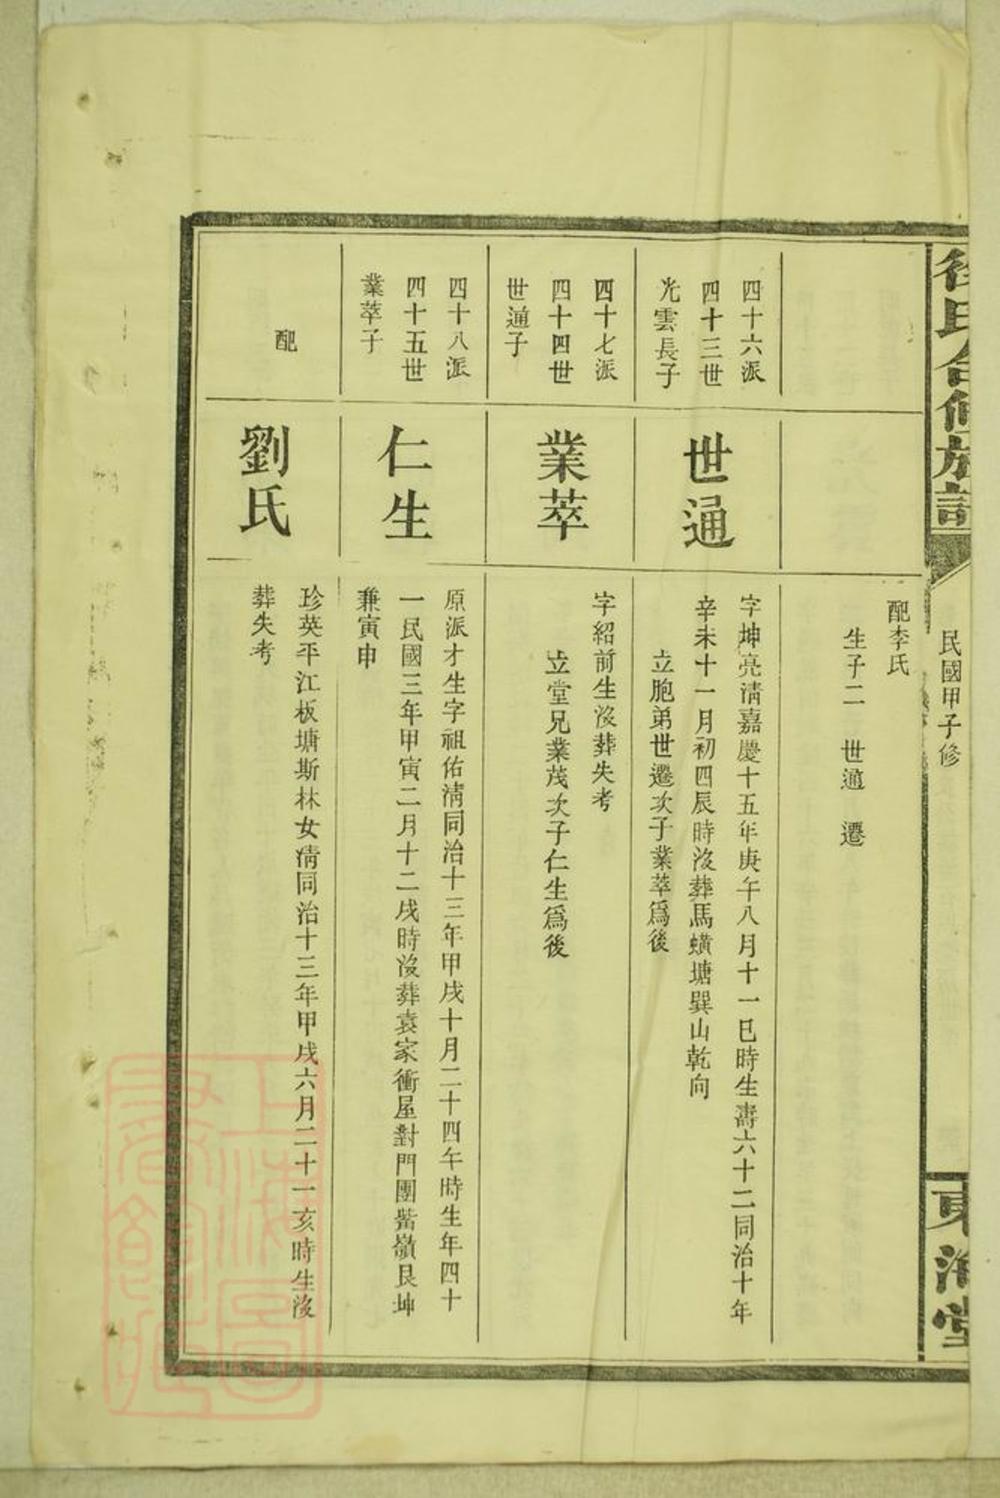 徐氏合修族譜
民國甲子修
東海堂
配李氏
生子二 世通 遷
四十六派
四十三世
光雲長子
世通
字坤亮淸嘉慶十五年庚午八月十一巳時生壽六十二同治十年
辛未十一月初四辰時沒葬馬蟥塘巽山乾向
立胞弟世遷次子業萃爲後
四十七派
四十四世
世通子
業萃
字紹前生沒葬失考
立堂兄業茂次子仁生爲後
四十八派
四十五世
業萃子
仁生
原派才生字祖佑淸同治十三年甲戌十月二十四午時生年四十
一民國三年甲寅二月十二戌時沒葬袁家衝屋對門團觜嶺艮坤
兼寅申
配
劉氏
珍英平江板塘斯林女淸同治十三年甲戌六月二十一亥時生沒
葬失考
上海圖
書館藏